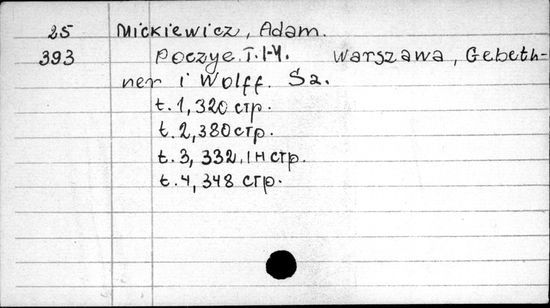 25 Mickiewicz, Adam.
393 Poczye. T. I-IV. Warszawa, Gebeth-
ner i Wolff. Sa.
t. 1, 320 стр.
t. 2, 380 стр.
t. 3, 332, IH стр.
t. 4, 348 стр.